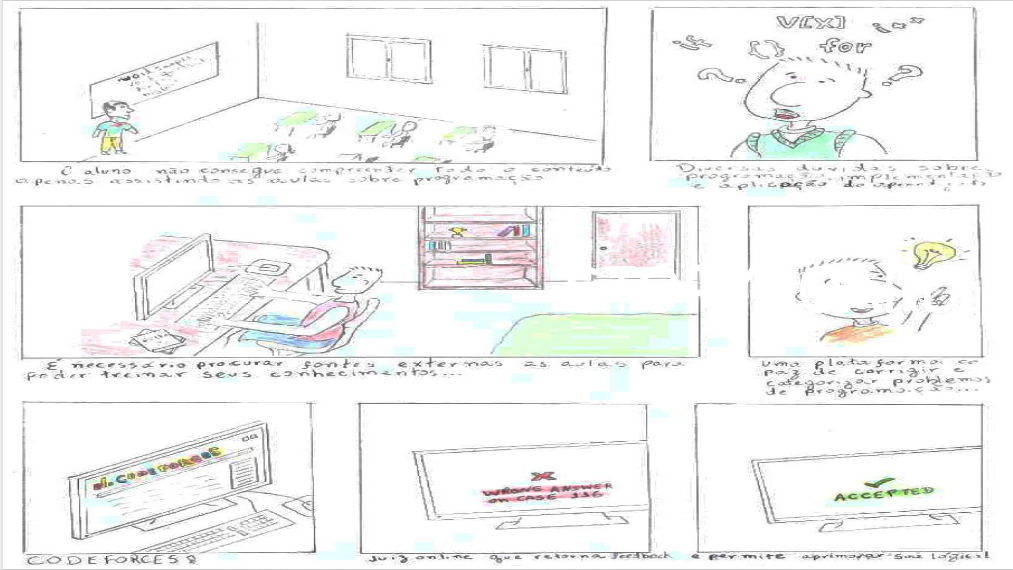 V[x]
i++
if
{}
for
?
?
O aluno não consegue compreender todo o conteúdo
apenas assistindo as aulas sobre programação
Diversas duvidas sobre
programação, implementação
e aplicação do
É necessário procurar fontes externas as aulas para
poder treinar seus conhecimentos...
uma plataforma ca
paz de corrigir e
categorizar problemas
de programação...
CODEFORCES
WRONG ANSWER
on CASE 116
ACCEPTED
CODEFORCES
Juiz online que retorna feedback e permite aprimorar sua lógica!